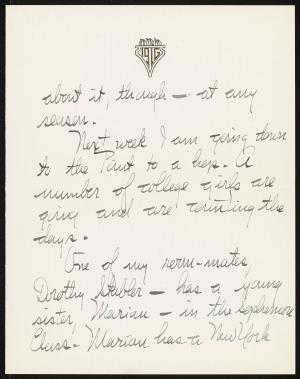 1916
about it, though — at any
season.
Next week I am going down
to the Point to a hop. A
number of college girls are
going and are counting the
days.
One of my room-mates,
Dorothy Stabler — has a young
sister, Marian — in the sophomore
Class — Marian has a New York